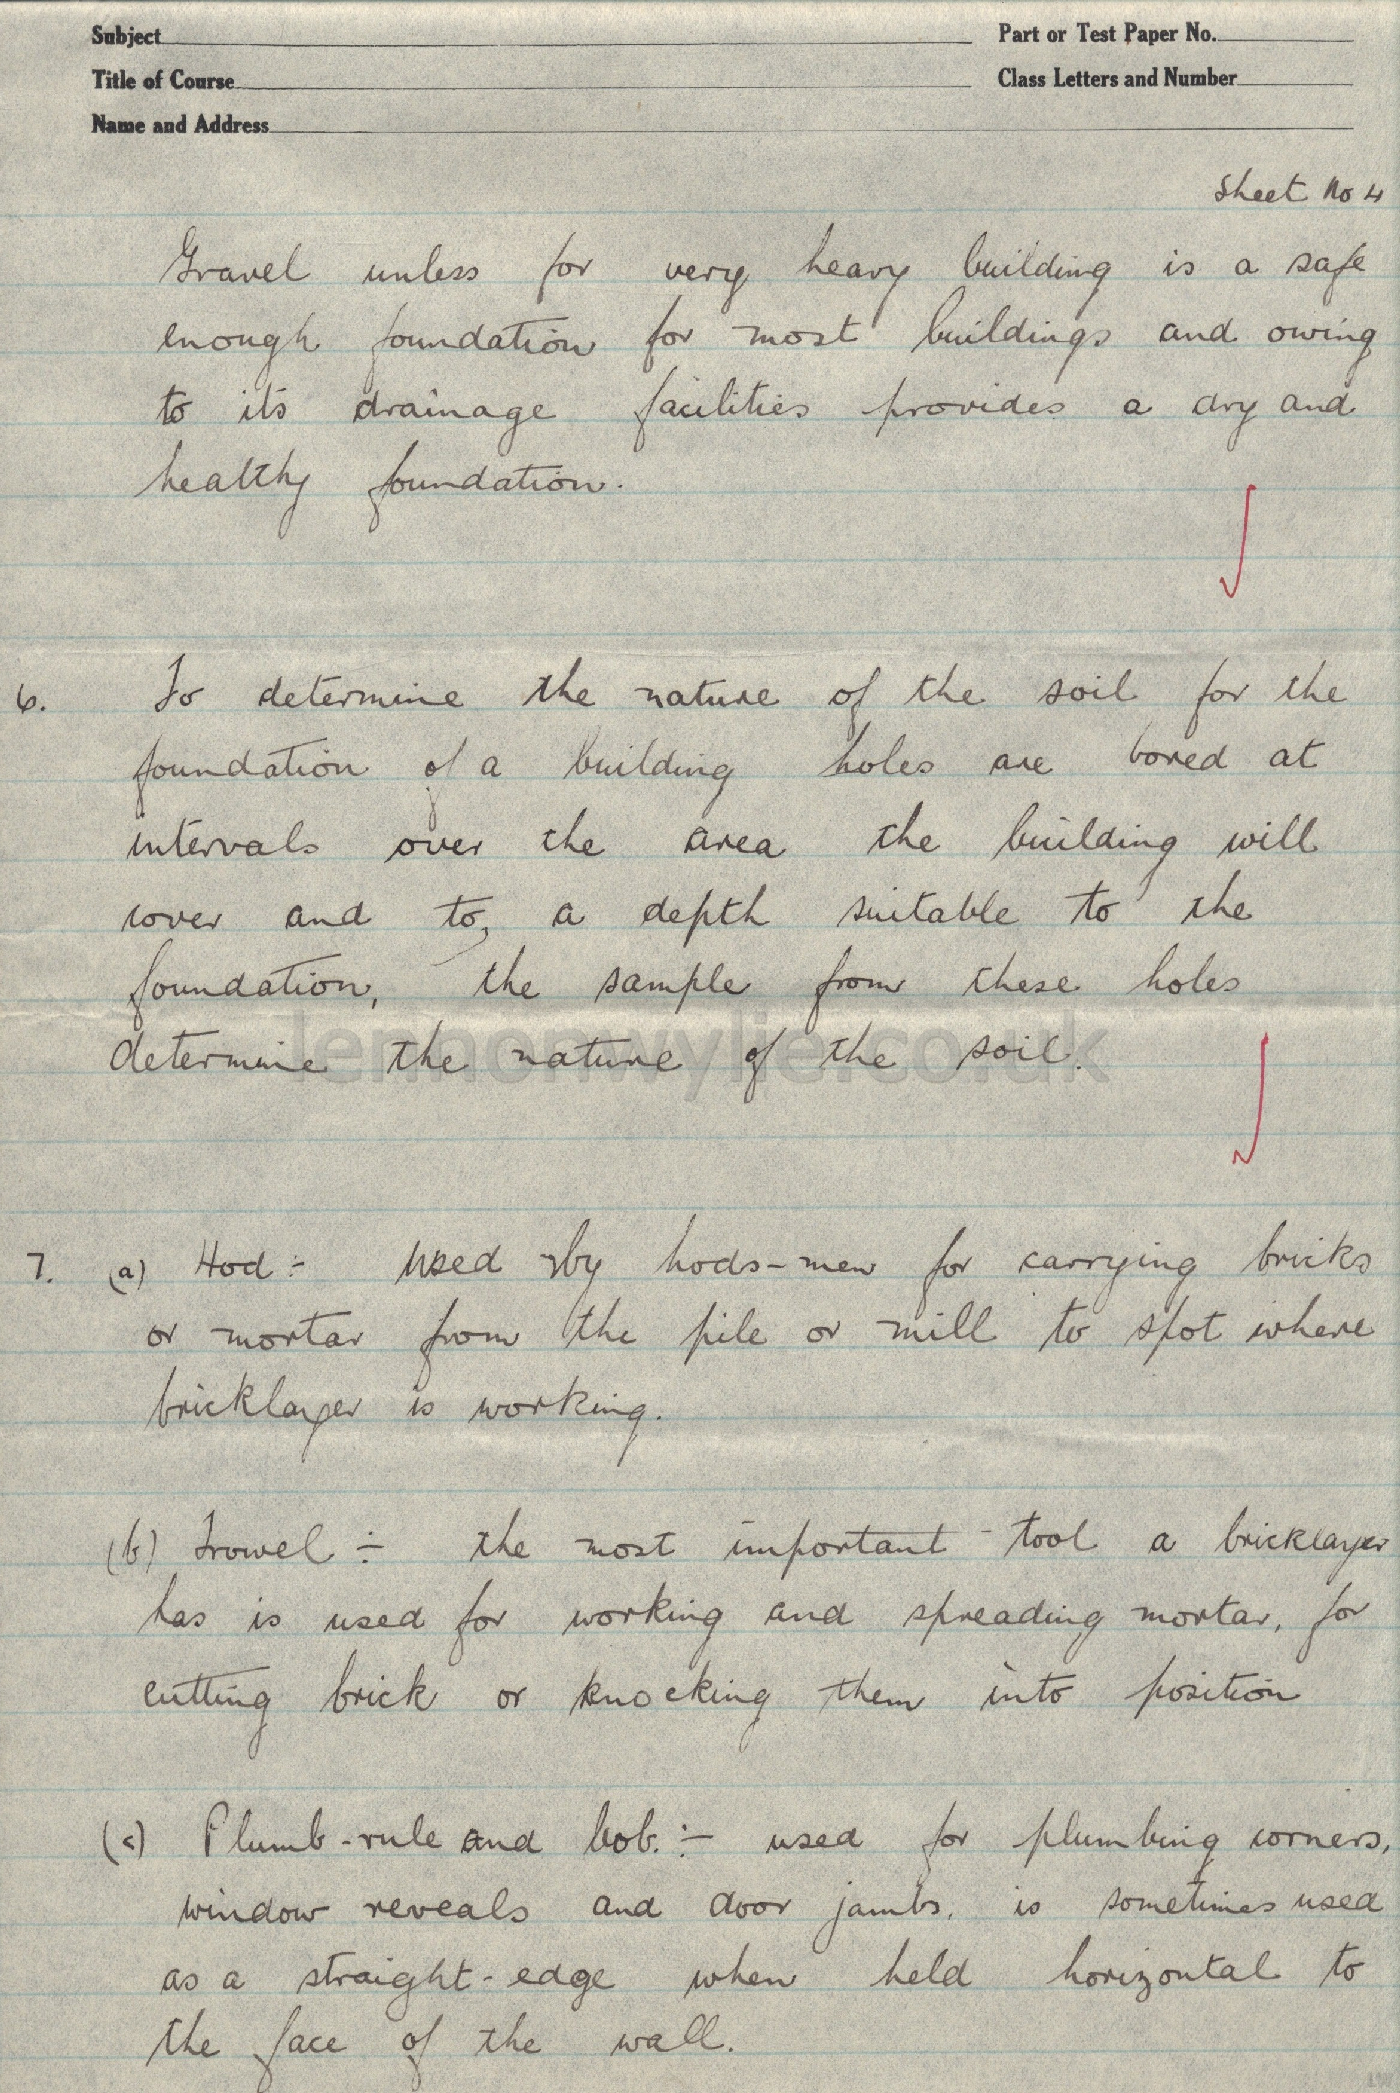 Subject
Part or Test Paper No.
Title of Course
Class Letters and Number
Name and Address
Sheet No 4
Gravel unless for very heavy building is a safe
enough foundation for most buildings and owing
to its drainage facilities provides a dry and
healthy foundation.
6. To determine the nature of the soil for the
foundation of a building holes are bored at
intervals over the area the building will
cover and to, a depth suitable to the
foundation, the sample from these holes
determine the nature of the soil.
lennonwylie.co.uk
7. (a) Hod :- Used by hods-men for carrying bricks
or mortar from the pile or mill to spot where
bricklayer is working.
(b) Trowel :- the most important tool a bricklayer
has is used for working and spreading mortar, for
cutting brick or knocking them into position
(c) Plumb-rule and bob. :- used for plumbing corners,
window reveals and door jambs. is sometimes used
as a straight-edge when held horizontal to
the face of the wall.